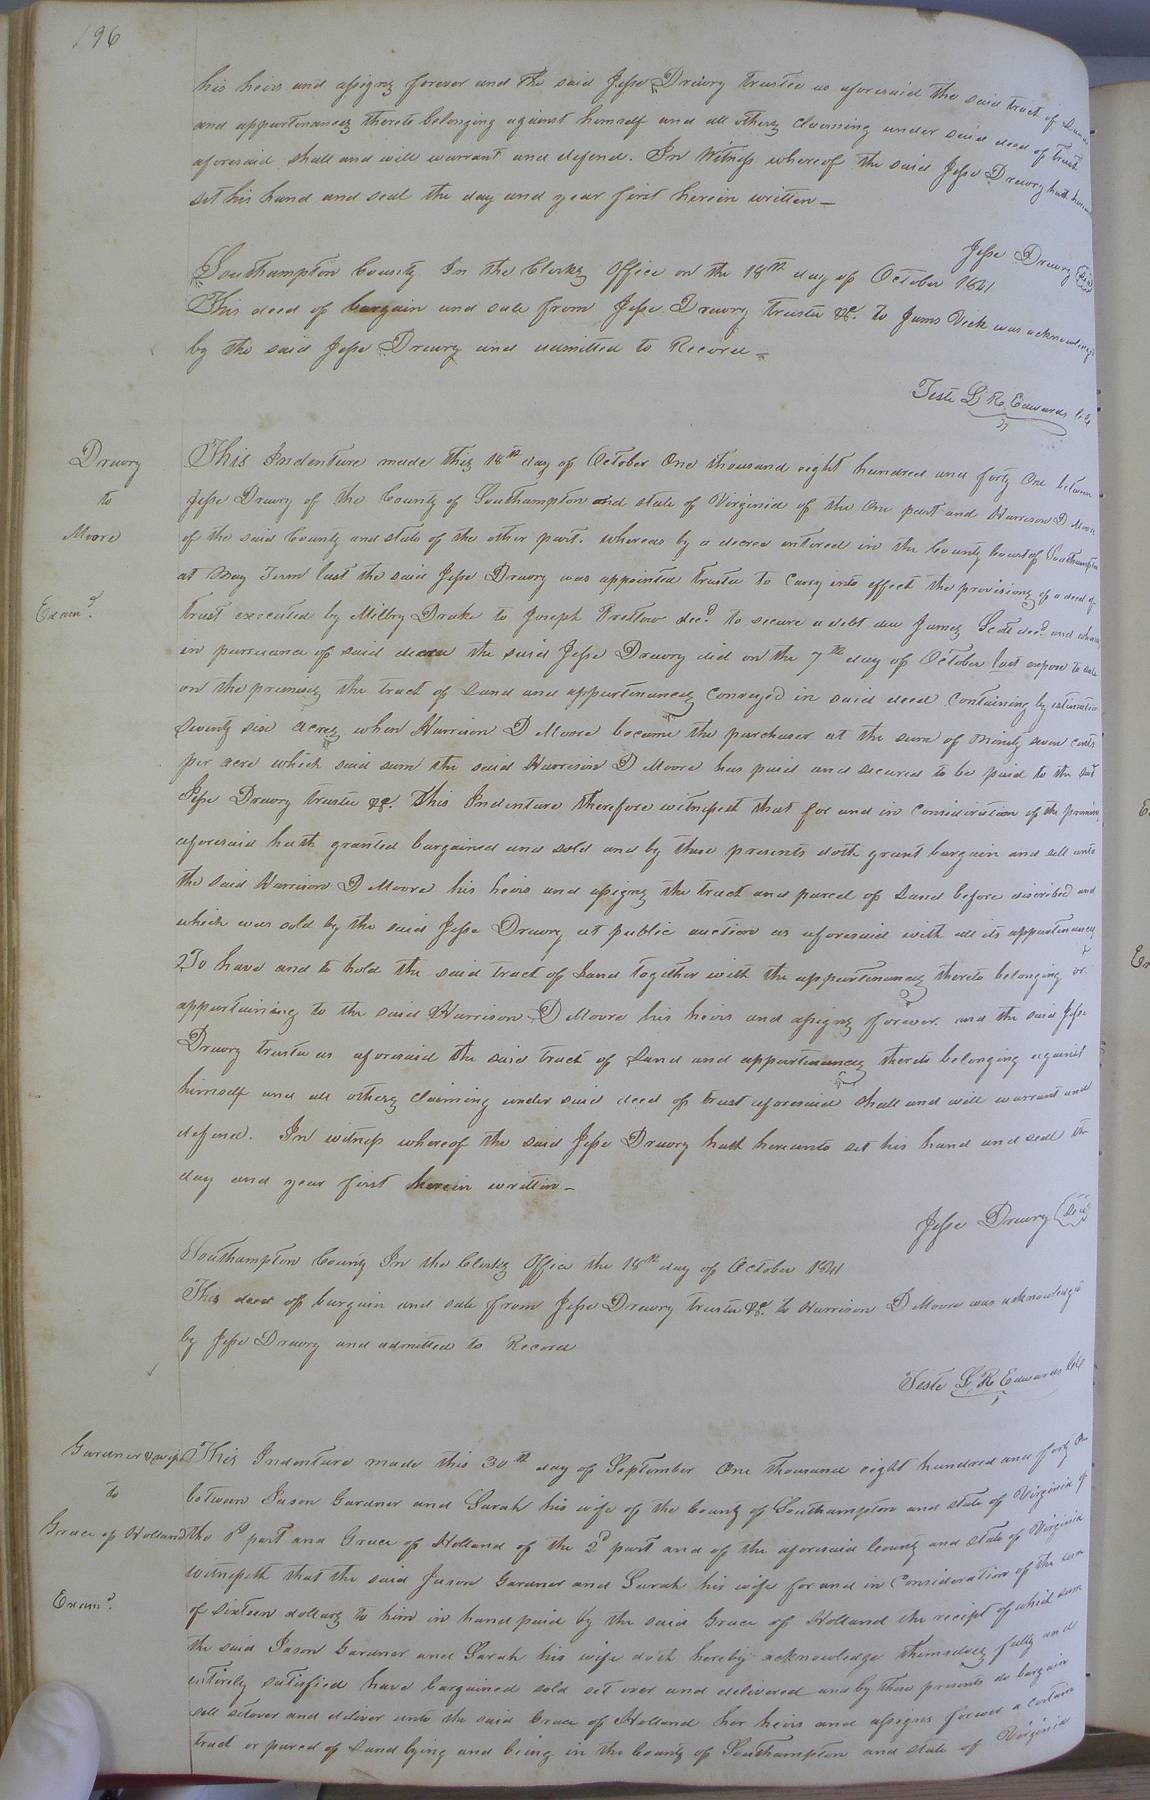 196
his heirs and assigns forever and the said Jesse Drewry trustee as aforesaid the said tract of Land
and appurtenances thereto belonging against himself and all others claiming under said deed of trust
aforesaid shall and will warrant and defend. In Witness whereof the said Jesse Drewry hath hereunto
set his hand and seal the day and year first herein written
Jesse Drewry (Seal)
Southampton County In the Clerks Office on the 18th day of October 1841
This deed of bargain and sale from Jesse Drewry trustee &c. to James Vick was acknowledged
by the said Jesse Drewry and admitted to Record
Teste L R Edwards
Drewry
to
Moore
Examd.
This Indenture made this 18th day of October One thousand eight hundred and forty One between
Jesse Drewry of the County of Southampton and state of Virginia of the One part and Harrison D Moore
of the said County and state of the other part. whereas by a decree entered in the County Court of Southampton
at May Term last the said Jesse Drewry was appointed trustee to carry into effect the provisions of a deed of
trust executed by Drake to Joseph Pretlow decd. to secure a debt due James Scott decd. and whereas
in pursuance of said decree the said Jesse Drewry did on the 7th day of October last expose to sale
on the premises the tract of Land and appurtenances conveyed in said deed containing by estimation
seventy six acres when Harrison D Moore became the purchaser at the sum of ninety seven cents
per acre which said sum the said Harrison D Moore has paid and secured to be paid to the said
Jesse Drewry trustee &c. This Indenture therefore witnesseth that for and in consideration of the premises
aforesaid hath granted bargained and sold and by these presents doth grant bargain and sell unto
the said Harrison D Moore his heirs and assigns the tract and parcel of Land before discribed and
which was sold by the said Jesse Drewry at public auction as aforesaid with all its appurtenances
To have and to hold the said tract of Land together with the appurtenances thereto belonging or
appurtaining to the said Harrison D Moore his heirs and assigns forever. and the said Jesse
Drewry trustee as aforesaid the said tract of Land and appurtenances thereto belonging against
himself and all others claiming under said deed of trust aforesaid shall and will warrant and
defend. In witness whereof the said Jesse Drewry hath hereunto set his hand and seal the
day and year first herein written
Jesse Drewry (Seal)
Southampton County In the Clerks Office the 18th day of October 1841
This deed of bargain and sale from Jesse Drewry trustee &c. to Harrison D Moore was acknowledged
by Jesse Drewry and admitted to Record
Teste L R Edwards
Gardner & wife
to
Grace of Holland
Examd.
This Indenture made this 30th day of September One thousand eight hundred and forty One
between Jason Gardner and Sarah his wife of the County of Southampton and state of Virginia of
the 1st part and Grace of Holland of the 2d part and of the aforesaid County and state of Virginia
witnesseth that the said Jason Gardner and Sarah his wife for and in Consideration of the sum
of sixteen dollars to him in hand paid by the said Grace of Holland the receipt of which sum
the said Jason Gardner and Sarah his wife doth hereby acknowledge themselves fully and
entirely satisfied have bargained sold set over and delivered and by these presents do bargain
sell setover and deliver unto the said Grace of Holland her heirs and assigns forever a certain
tract or parcel of Land lying and being in the County of Southampton and state of Virginia